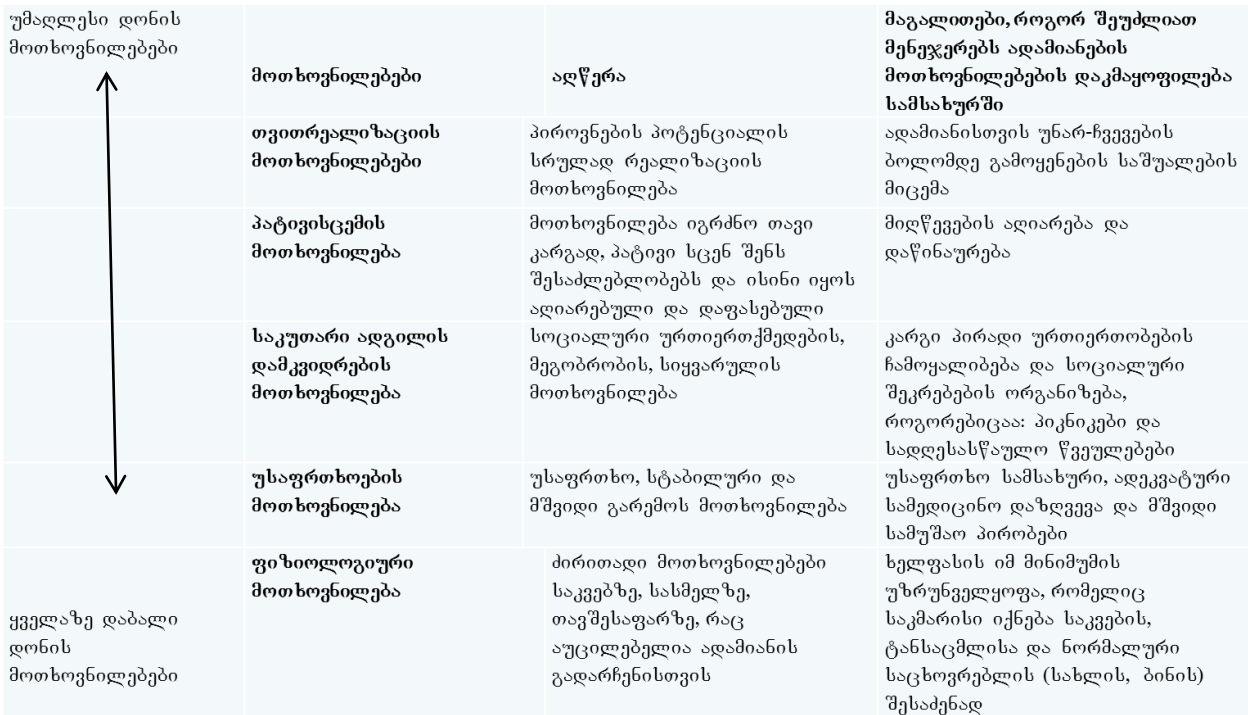 უმაღლესი დონის
მოთხოვნილებები
მოთხოვნილებები
აღწერა
მაგალითები, როგორ შეუძლიათ
მენეჯერებს ადამიანების
მოთხოვნილებების დაკმაყოფილება
სამსახურში
თვითრეალიზაციის
მოთხოვნილებები
პიროვნების პოტენციალის
სრულად რეალიზაციის
მოთხოვნილება
ადამიანისთვის უნარ-ჩვევების
ბოლომდე გამოყენების საშუალების
მიცემა
პატივისცემის
მოთხოვნილება
მოთხოვნილება იგრძნო თავი
კარგად, პატივი სცენ შენს
შესაძლებლობებს და ისინი იყოს
აღიარებული და დაფასებული
მიღწევების აღიარება და
დაწინაურება
საკუთარი ადგილის
დამკვიდრების
მოთხოვნილება
სოციალური ურთიერთქმედების,
მეგობრობის, სიყვარულის
მოთხოვნილება
კარგი პირადი ურთიერთობების
ჩამოყალიბება და სოციალური
შეკრებების ორგანიზება,
როგორებიცაა: პიკნიკები და
სადღესასწაულო წვეულებები
უსაფრთხოების
მოთხოვნილება
უსაფრთხო, სტაბილური და
მშვიდი გარემოს მოთხოვნილება
უსაფრთხო სამსახური, ადეკვატური
სამედიცინო დაზღვევა და მშვიდი
სამუშაო პირობები
ყველაზე დაბალი
დონის
მოთხოვნილებები
ფიზიოლოგიური
მოთხოვნილება
ძირითადი მოთხოვნილებები
საკვებზე, სასმელზე,
თავშესაფარზე, რაც
აუცილებელია ადამიანის
გადარჩენისთვის
ხელფასის იმ მინიმუმის
უზრუნველყოფა, რომელიც
საკმარისი იქნება საკვების,
ტანსაცმლისა და ნორმალური
საცხოვრებლის (სახლის, ბინის)
შესაძენად